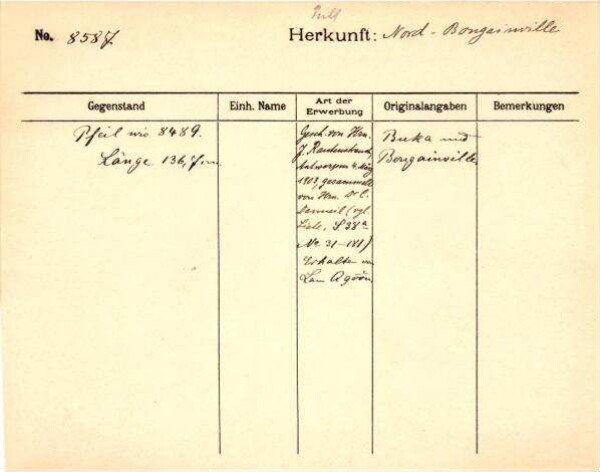 No. 8587
Herkunft: Nord-Bougainville
Gegenstand
Einh. Name
Art der
Erwerbung
Originalangaben
Bemerkungen
Pfeil wie 8489.
Länge 136,7 cm.
Gesch. von Hrn.
J. Rautenstrauch,
Antwerpen 4. März
1903, gesammelt
von Hrn. Dr C.
Danneil (vgl.
Liste, S 38a
Nr. 31-181)
Erhalten von
Lau
Buka und
Bougainville